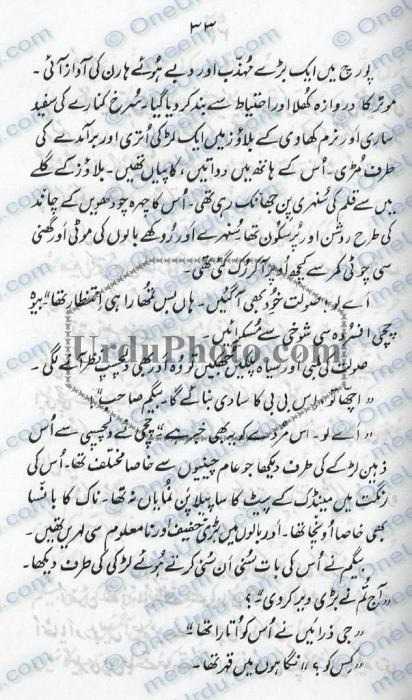 ۳۳
پورچ میں ایک بڑے مہذب اور دبے ہوئے ہارن کی آواز آئی ۔
موٹر کا دروازہ کھلا اور احتیاط سے بند کر دیا گیا۔ سُرخ کنارے کی سفید
ساری اور نرم کھادی کے بلاؤز میں ایک لڑکی اُتری اور برآمدے کی
طرف مُڑی۔ اُس کے ہاتھ میں دواتیں، کاپیاں تھیں۔ بلاؤز کے گلے
میں سے قلم کی سُنہری پن جھانک رہی تھی۔ اُس کا چہرہ چودھویں کے چاند
کی طرح روشن اور پُرسکون تھا۔ سُنہرے اور رُوکھے بالوں کی موٹی اور گھنی
سی چوٹی کمر سے کچھ اُوپر آ کر رُک گئی تھی۔
اے لو۔ صولت خود بھی آ گئیں۔ ہاں بس تمھارا ہی انتظار تھا“ بیزہ
چچی افسُردہ سی شوخی سے مُسکرائیں۔
صولت کی لمبی اور سیاہ پلکیں جُھکیں تو وہ اور بھی دلچسپ نظر آنے لگی ۔
”اچھا تو۔ اِس بی بی کا سادی بنائے گا۔ بیگم صاحب“!
”اے لو۔ اس مردے کو یہ بھی خبر ہے“ چچی نے دلچسپی سے اُس
ذہین لڑکے کی طرف دیکھا جو عام چینیوں سے خاصا مختلف تھا۔ اُس کی
رنگت میں مینڈک کے پیٹ کا سا پیلا پن نمایاں نہ تھا۔ ناک کا بانسا
بھی خاصا اُونچا تھا۔ اور بالوں میں بڑی خفیف اور نامعلوم سی لہریں تھیں۔
بیگم نے اُس کی بات سُنی اَن سُنی کرتے ہُوئے لڑکی کی طرف دیکھا۔
”آج تم نے بڑی دیر کر دی“؟
”جی ڈرائیں نے اُس کو اُتارا تھا“
”کِس کو؟“ نگاہوں میں قہر تھا۔
UrduPhoto.com